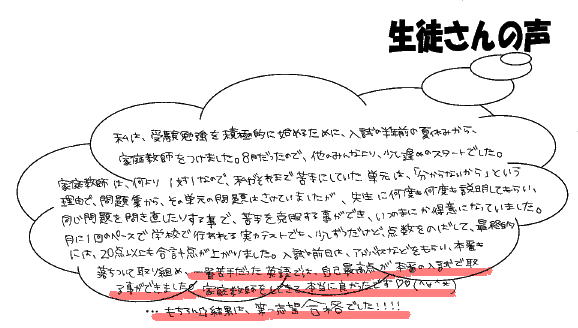 生徒さんの声
私は、受験勉強を積極的に始めるために、入試の半年前の夏休みから、
家庭教師をつけました。8月だったので、他のみんなより、少し遅めのスタートでした。
家庭教師は、何より1対1なので、私がそれまで苦手にしていた単元は、「分からないから」という
理由で、問題集から、その単元の問題はさけていましたが、先生に何度も何度も説明してもらい、
同じ問題を問き直したりする事で、苦手を克服する事ができ、いつのまにか得意になっていました。
月に1回のペースで学校で行なわれる実力テストでも、少しずつだけど、点数をのばして、最終的
には、20点以上も合計点が上がりました。入試の前日は、アドバイスなどをもらい、本番も
落ちついて取り組め、一番苦手だった英語では、自己最高点が本番の入試で取
る事ができました。家庭教師をしてきて、本当に良かったです♡♡(^v^*)
…もちろん、結果は、第一志望合格でした!!!!